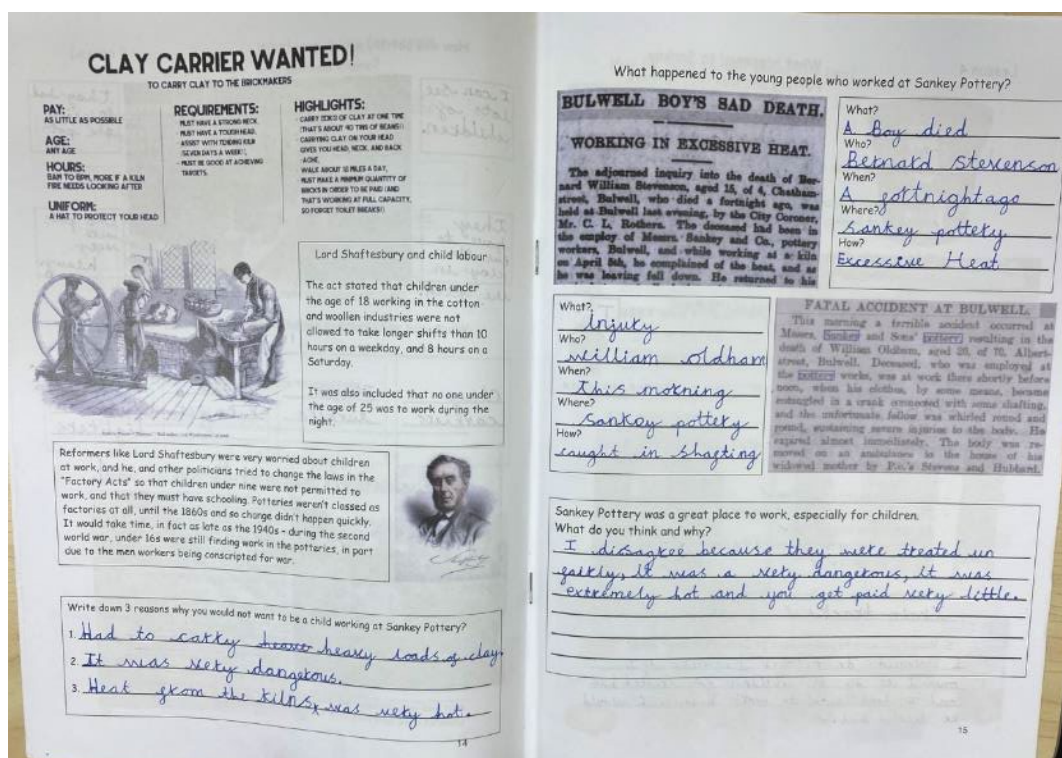 CLAY CARRIER WANTED!
TO CARRY CLAY TO THE BRICKMAKERS
PAY:
AS LITTLE AS POSSIBLE
AGE:
ANY AGE
HOURS:
6AM TO 8PM, MORE IF A KILN
FIRE NEEDS LOOKING AFTER
UNIFORM:
A HAT TO PROTECT YOUR HEAD
REQUIREMENTS:
MUST HAVE A STRONG NECK
MUST HAVE A TOUGH HEAD.
ASSIST WITH TENDING KILN
SEVEN DAYS A WEEK!
MUST BE GOOD AT ACHIEVING
TARGETS.
HIGHLIGHTS:
CARRY OF CLAY AT ONE TIME
(THAT'S ABOUT 90 TINS OF BEANS!)
CARRYING CLAY ON YOUR HEAD
GIVES YOU HEAD, NECK, AND BACK
ACHE.
WALK ABOUT MILES A DAY,
MUST MAKE A MINIMUM QUANTITY OF
BRICKS IN ORDER TO BE PAID (AND
THAT'S WORKING AT FULL CAPACITY,
SO FORGET TOILET BREAKS!)
Lord Shaftesbury and child labour
The act stated that children under
the age of 18 working in the cotton
and woollen industries were not
allowed to take longer shifts than 10
hours on a weekday, and 8 hours on a
Saturday.
It was also included that no one under
the age of 25 was to work during the
night.
Reformers like Lord Shaftesbury were very worried about children
at work, and he, and other politicians tried to change the laws in the
"Factory Acts" so that children under nine were not permitted to
work, and that they must have schooling. Potteries weren't classed as
factories at all, until the 1860s and so change didn't happen quickly.
It would take time, in fact as late as the 1940s - during the second
world war, under 16s were still finding work in the potteries, in part
due to the men workers being conscripted for war.
Write down 3 reasons why you would not want to be a child working at Sankey Pottery?
1. Had to carry heavy loads of clay.
2. It was very dangerous.
3. Heat from the kilns, was very hot.
14
What happened to the young people who worked at Sankey Pottery?
BULWELL BOY'S SAD DEATH.
WORKING IN EXCESSIVE HEAT.
The adjourned inquiry into the death of Ber-
nard William Stevenson, aged 15, of 4, Chatham-
street, Bulwell, who died a fortnight ago, was
held at Bulwell last evening, by the City Coroner,
Mr. C. L. Rothera. The deceased had been in
the employ of Messrs. Sankey and Co., pottery
workers, Bulwell, and while working at a kiln
on April 8th, he complained of the heat, and as
he was leaving fell down. He returned to his
What?
A Boy died
Who?
Bernard stevenson
When?
A fortnight ago
Where?
Sankey pottery
How?
Excessive Heat
What?
Injury
Who?
William oldham
When?
This morning
Where?
Sankey pottery
How?
caught in shafting
FATAL ACCIDENT AT BULWELL.
This morning a terrible accident occurred at
Messrs. Sankey and Sons' pottery, resulting in the
death of William Oldham, aged 20, of 70, Albert-
street, Bulwell. Deceased, who was employed at
the pottery works, was at work there shortly before
noon, when his clothes, by some means, became
entangled in a crank connected with some shafting,
and the unfortunate fellow was whirled round and
round, sustaining severe injuries to the body. He
expired almost immediately. The body was re-
moved on an ambulance to the house of his
widowed mother by P.c.'s Stevens and Hubbard.
Sankey Pottery was a great place to work, especially for children.
What do you think and why?
I dissagree because they were treated un
fairly, it was a very dangerous, it was
extremely hot and you get paid very little.
15